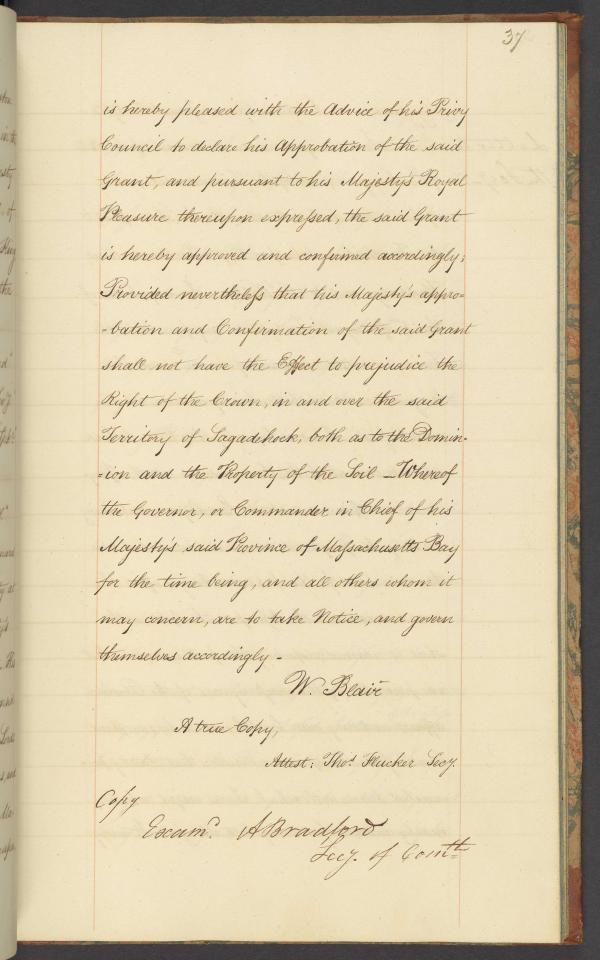 37
is hereby pleased with the Advice of his Privy
Council to declare his Approbation of the said
Grant, and pursuant to his Majesty's Royal
Pleasure thereupon expressed, the said Grant
is hereby approved and confirmed accordingly;
Provided nevertheleſs that his Majesty's appro=
-bation and Confirmation of the said Grant
shall not have the Effect to prejudice the
Right of the Crown, in and over the said
Territory of Sagadehock, both as to the Domin-
=ion and the Property of the Soil — Whereof
the Governor, or Commander in Chief of his
Majesty's said Province of Maſsachusetts Bay
for the time being, and all others whom it
may concern, are to take Notice, and govern
themselves accordingly -
W. Blair
A true Copy,
Attest: Thos. Flucker Secy.
Copy
Examd. A Bradford
Secy. of Comth